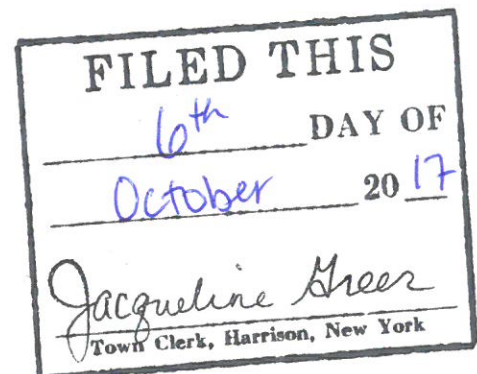 FILED THIS
6th DAY OF
October 2017
Jacqueline Greer
Town Clerk, Harrison, New York